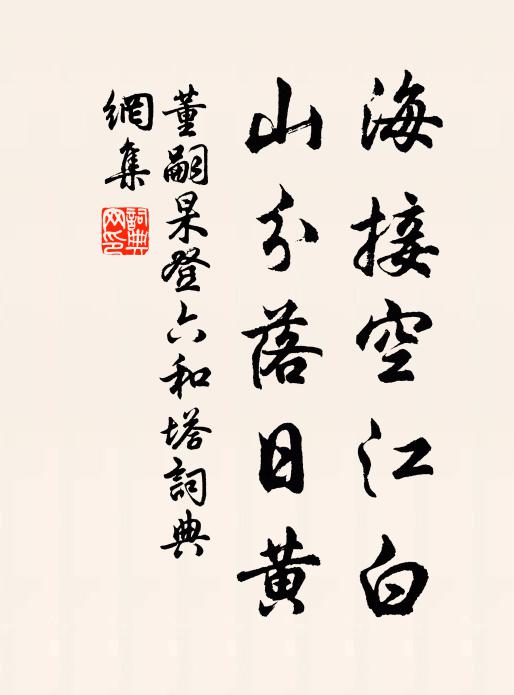 海接空江白
山分落日黄
董嗣杲登六和塔詞典
網集
詞典網印